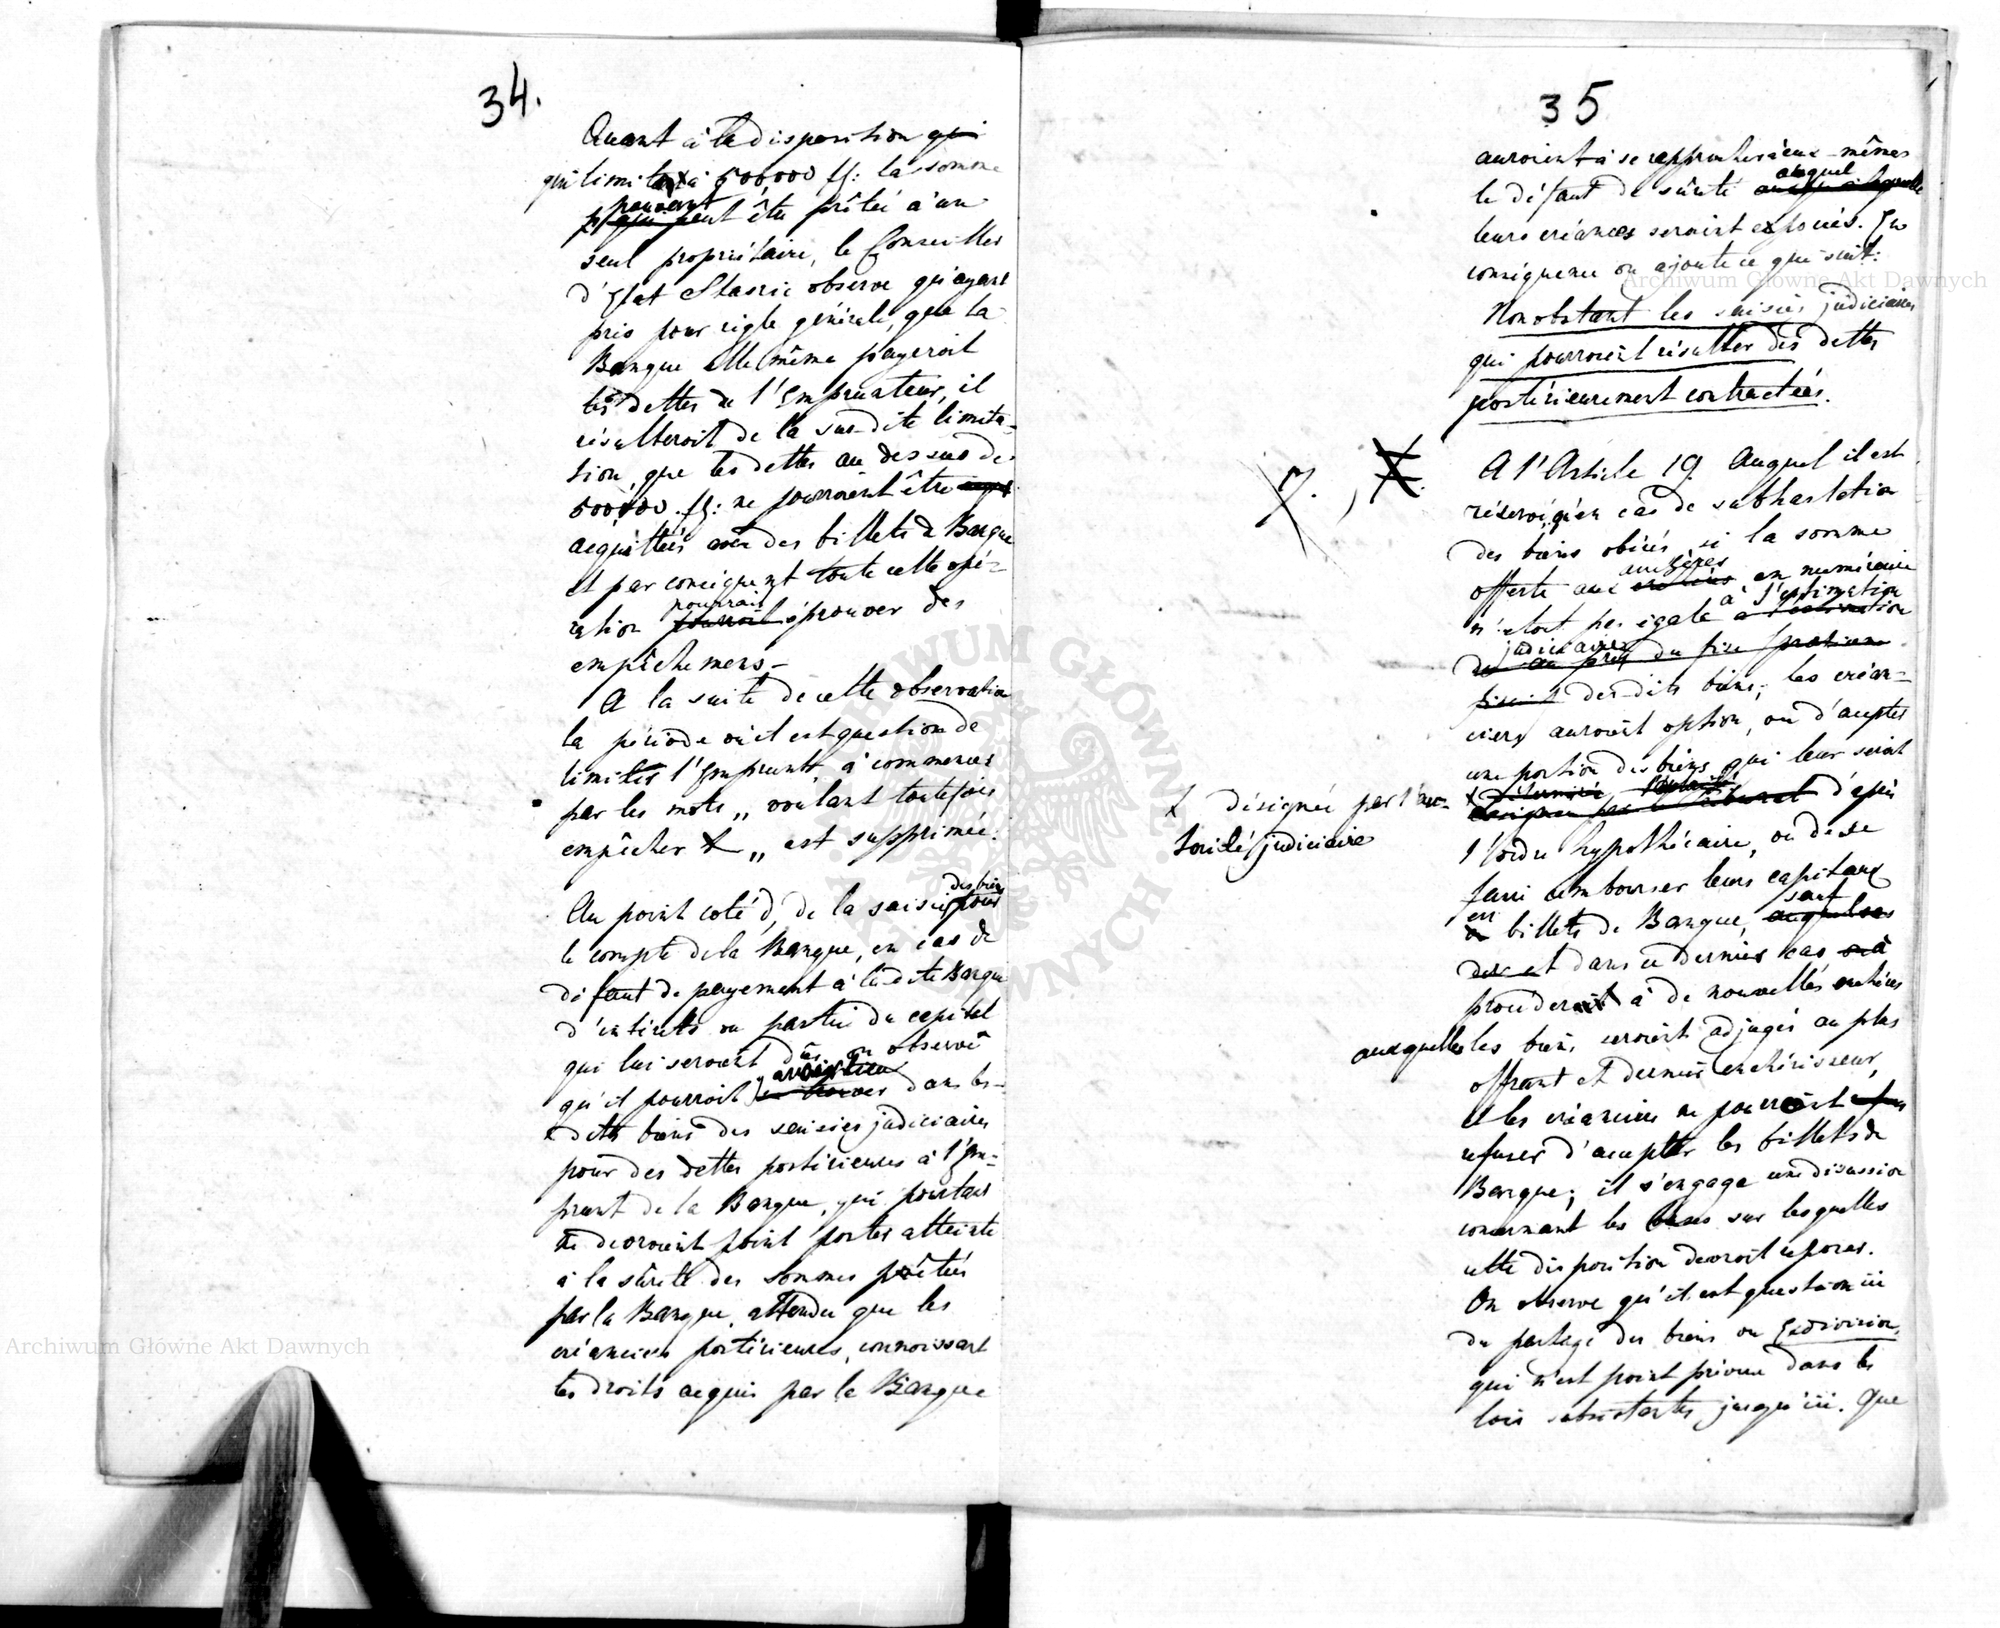 34.
Quant à la disposition qui
qui limite à 500,000 fl: la somme
pouvant
qui peut être prêtée à un
seul propriétaire, le Conseiller
d'Etat Staszic observe qu'ayant
pris pour règle générale, que la
Banque elle même payeroit
les dettes de l'Emprunteur, il
résulteroit de la sus-dite limita-
tion, que les dettes au dessus de
500000 fl: ne pourroient être
acquittées avec des billets de Banque
et par conséquent toute cette opé-
pourrait
ration pourroit éprouver des
empêchemens.-
A la suite de cette observation
la période où il est question de
limiter l'Emprunt, à commencer
par les mots „ voulant toutefois
empêcher „ est supprimée.
des biens
Au point coté d, de la saisie pour
le compte de la Banque, en cas de
défaut de payement à la dite Banque
d'intérêts ou partie du capital
qui lui seroient dûs, on observe
qu'il pourroit dans les
dits biens des saisies judiciaires
pour des dettes postérieures à l'Em-
prunt de la Banque, qui pourtant
ne devroient point porter atteinte
à la sûreté des sommes prêtées
par la Banque, attendu que les
créanciers postérieurs, connoissant
les droits acquis par la Banque
35
auroient à se reprocher à eux-mêmes
auquel
le défaut de sûreté
leurs créances seroient exposées. En
conséquence on ajoute ce que suit:
Nonobstant les saisies judiciaires
qui pourroient résulter des dettes
postérieurement contractées.
7.
A l'Article 19. Auquel il est
réservé, qu'en cas de subhastation
des biens obérés, si la somme
enchères
offerte aux en numéraire
à l'estimation
n'étoit pas égale à l'estimation
judiciaire
du fisc
des dits biens, les créan-
ciers auroient option, ou d'accepter
une portion des biens qui leur seroit
x désignée par l'au-
torité judiciaire
d'après
l'ordre hypothécaire, ou de se
faire rembourser leurs capitaux
en sauf
billets de Banque,
et dans ce dernier cas
procéder à de nouvelles enchères
auxquelles les biens seroient adjugés au plus
offrant et dernier enchérisseur,
et les créanciers ne pourroient
refuser d'accepter les billets de
Banque; il s'engage une discussion
concernant les bases sur lesquelles
cette disposition devroit reposer.
On observe qu'il est question ici
du partage des biens ou Exdivision,
qui n'est point prévue dans les
lois subsistantes jusqu'ici. Que
Archiwum Główne Akt Dawnych
Archiwum Główne Akt Dawnych
ARCHIWUM GŁÓWNE AKT DAWNYCH